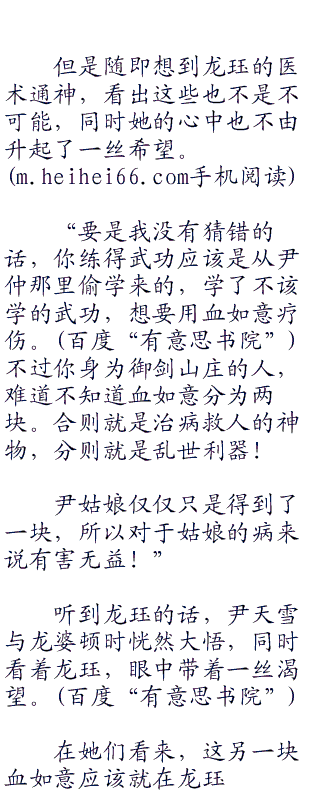 但是随即想到龙珏的医
术通神，看出这些也不是不
可能，同时她的心中也不由
升起了一丝希望。
(m.heihei66.com手机阅读)
“要是我没有猜错的
话，你练得武功应该是从尹
仲那里偷学来的，学了不该
学的武功，想要用血如意疗
伤。(百度“有意思书院”)
不过你身为御剑山庄的人，
难道不知道血如意分为两
块。合则就是治病救人的神
物，分则就是乱世利器！
尹姑娘仅仅只是得到了
一块，所以对于姑娘的病来
说有害无益！”
听到龙珏的话，尹天雪
与龙婆顿时恍然大悟，同时
看着龙珏，眼中带着一丝渴
望。(百度“有意思书院”)
在她们看来，这另一块
血如意应该就在龙珏